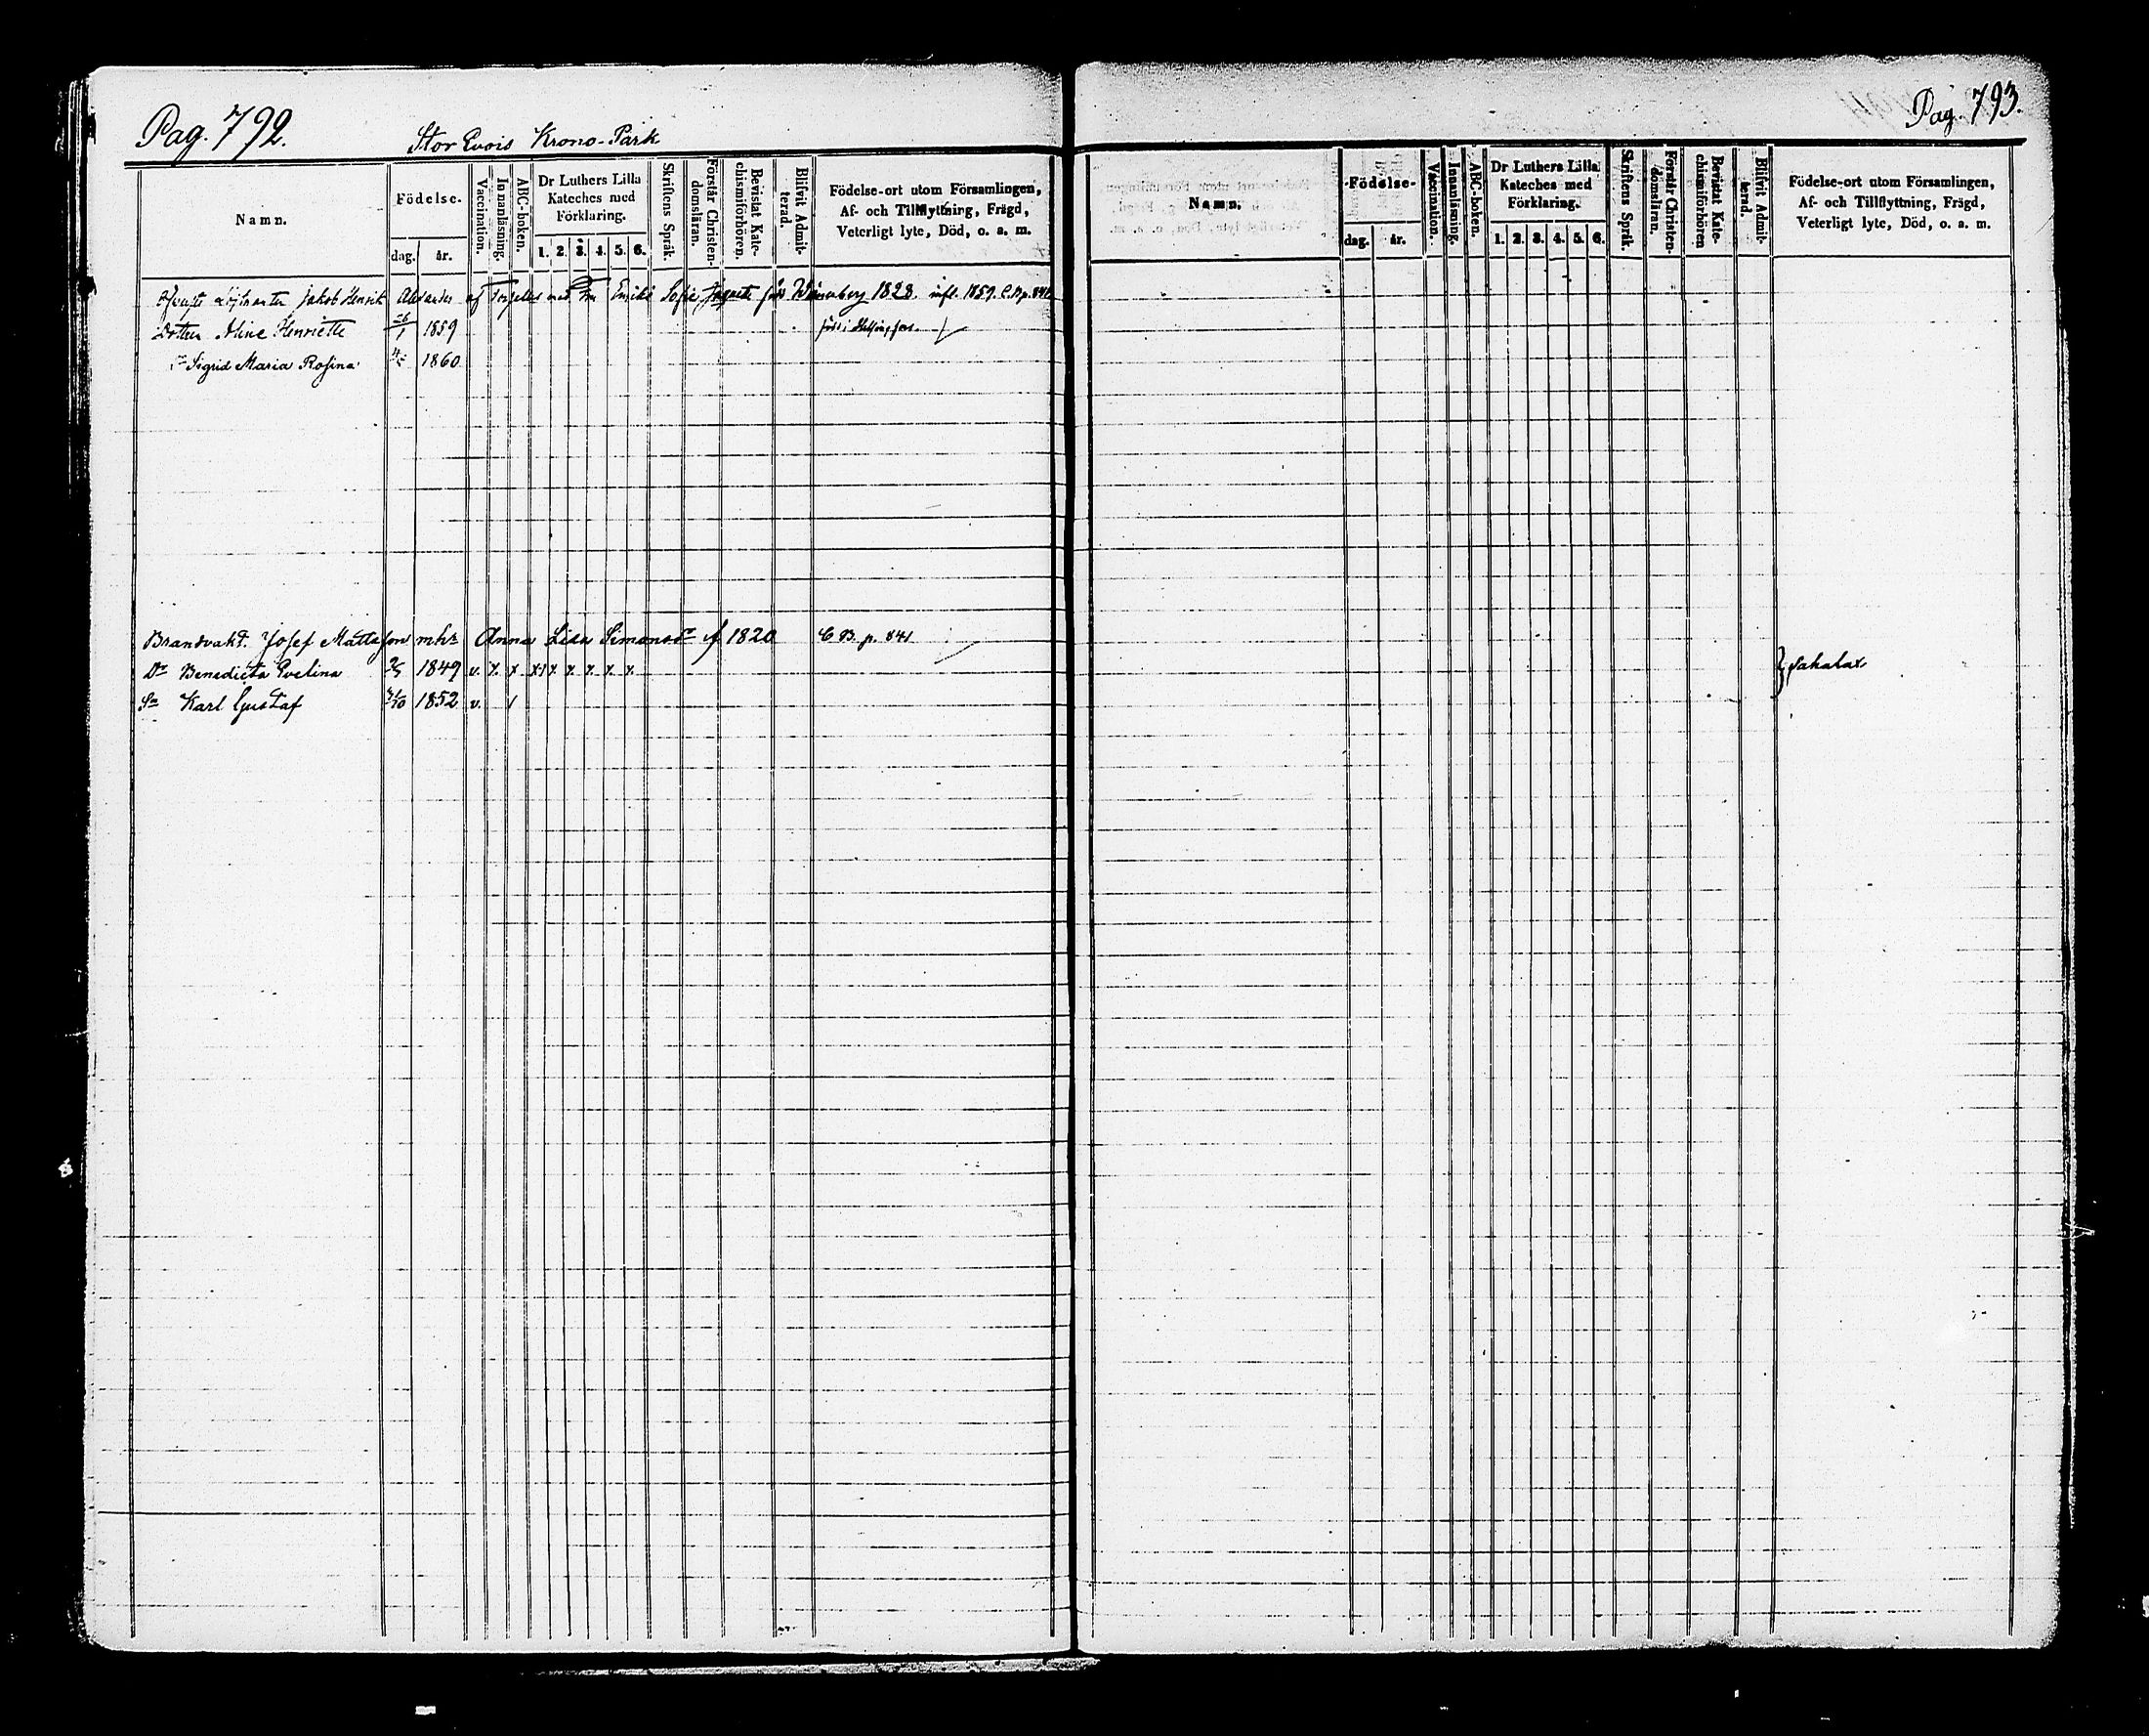 Pag. 792.
Stor Evois Krono-Park
Namn.
Födelse-
dag. år.
Vaccination.
Innanläsning.
ABC-boken.
Dr Luthers Lilla
Kateches med
Förklaring.
1. 2. 3. 4. 5. 6.
Skriftens Språk.
Förstår Christen-
domsläran.
Bevistat Kate-
chismiförhören.
Blifvit Admit-
terad.
Födelse-ort utom Församlingen,
Af- och Tillflyttning, Frägd,
Veterligt lyte, Död, o. a. m.
Jakob Henrik Alexander af Forselles med Fru Emilie Sofie Winnberg 1828. infl. 1859. C.B. p. 841
Dotter Aline Henriette 26/1 1859 född i Helsingfors.
Sigrid Maria Rosina 1860
Brandvakt. Josef Mattsson m hr Anna Lisa Simonsdr f 1820 C B. p. 841
Dr Benedicta Evelina 1849 v. x x x x x x x x x
Sn Karl Gustaf 1852 v. /
Pag. 793.
Namn.
Födelse-
dag. år.
Vaccination.
Innanläsning.
ABC-boken.
Dr Luthers Lilla
Kateches med
Förklaring.
1. 2. 3. 4. 5. 6.
Skriftens Språk.
Förstår Christen-
domsläran.
Bevistat Kate-
chismiförhören
Blifvit Admit-
terad.
Födelse-ort utom Församlingen,
Af- och Tillflyttning, Frägd,
Veterligt lyte, Död, o. a. m.